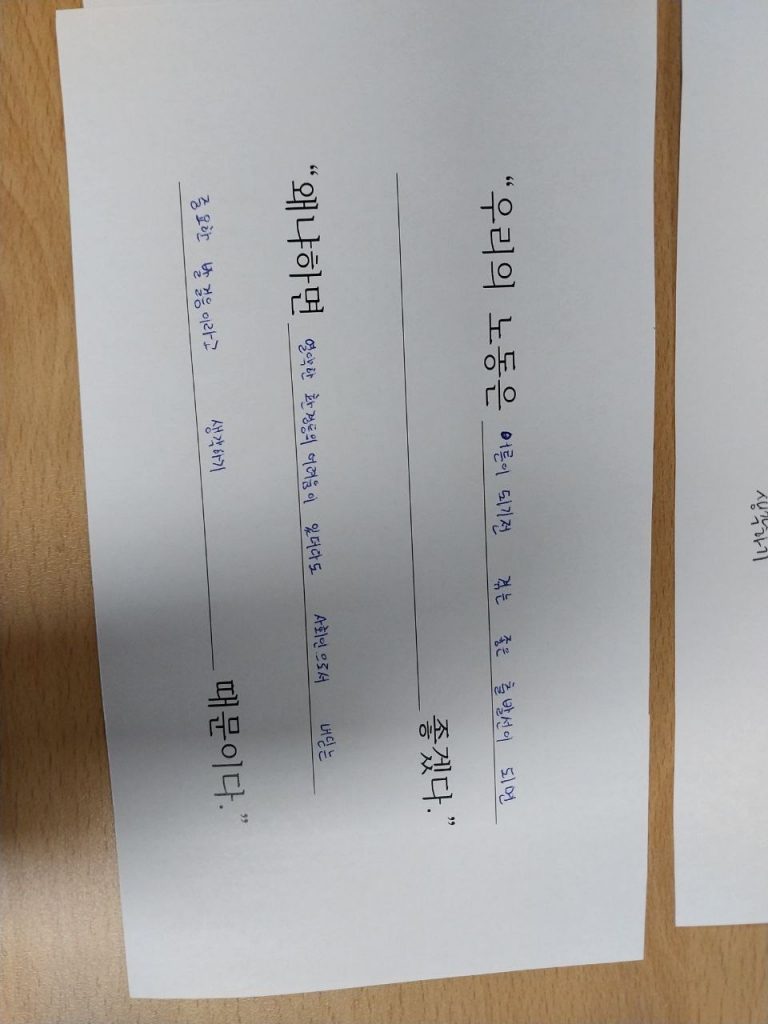 “우리의 노동은 어른이 되기전 겪는 좋은 출발선이 되면
좋겠다.”
“왜냐하면 열악한 환경등의 어려움이 있더라도 사회인으로서 내딛는
중요한 발걸음이라고 생각하기
때문이다.”
생각하기